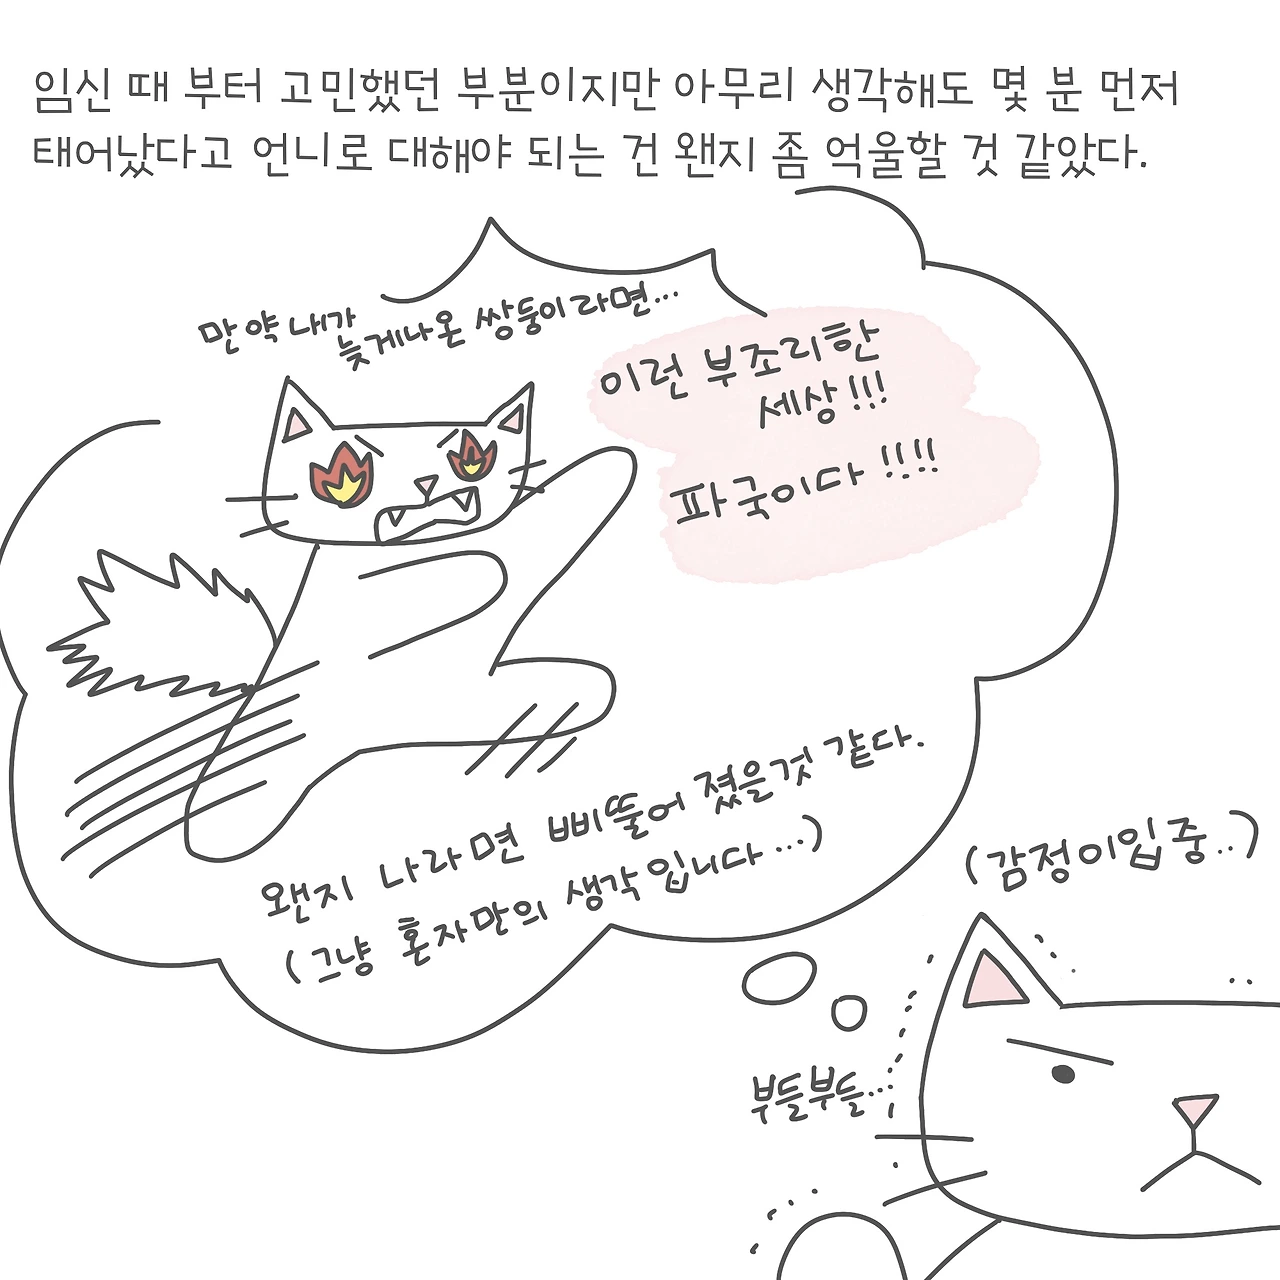 임신 때 부터 고민했던 부분이지만 아무리 생각해도 몇 분 먼저
태어났다고 언니로 대해야 되는 건 왠지 좀 억울할 것 같았다.
만약 내가
늦게나온 쌍둥이라면...
이런 부조리한
세상!!!
파국이다!!!!
왠지 나라면 삐뚤어 졌을것 같다.
(그냥 혼자만의 생각입니다...)
(감정이입중..)
부들부들...